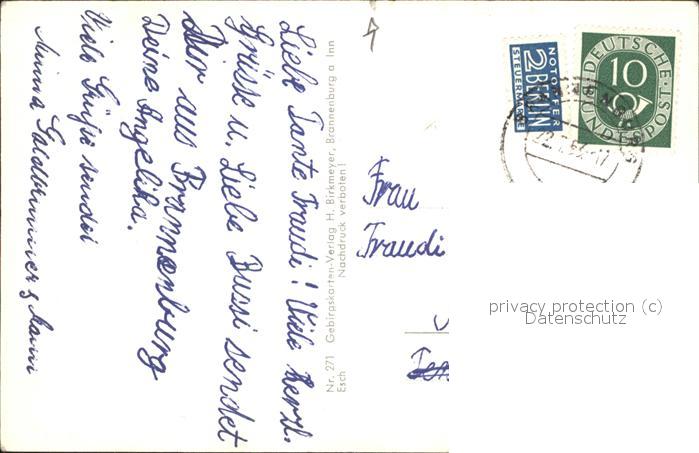 Liebe Tante Traudi! Viele herzl.
Grüsse u. Liebe Bussi sendet
Dir aus Brannenburg
Deine Angelika.
Viele Grüße sendet
Minna
Nr. 271 Gebirgskarten-Verlag H. Birkmeyer, Brannenburg a Inn
Esch Nachdruck verboten!
NOTOPFER
2 BERLIN
STEUERMARKE
DEUTSCHE
10
BUNDESPOST
Frau
Traudi
privacy protection (c)
Datenschutz